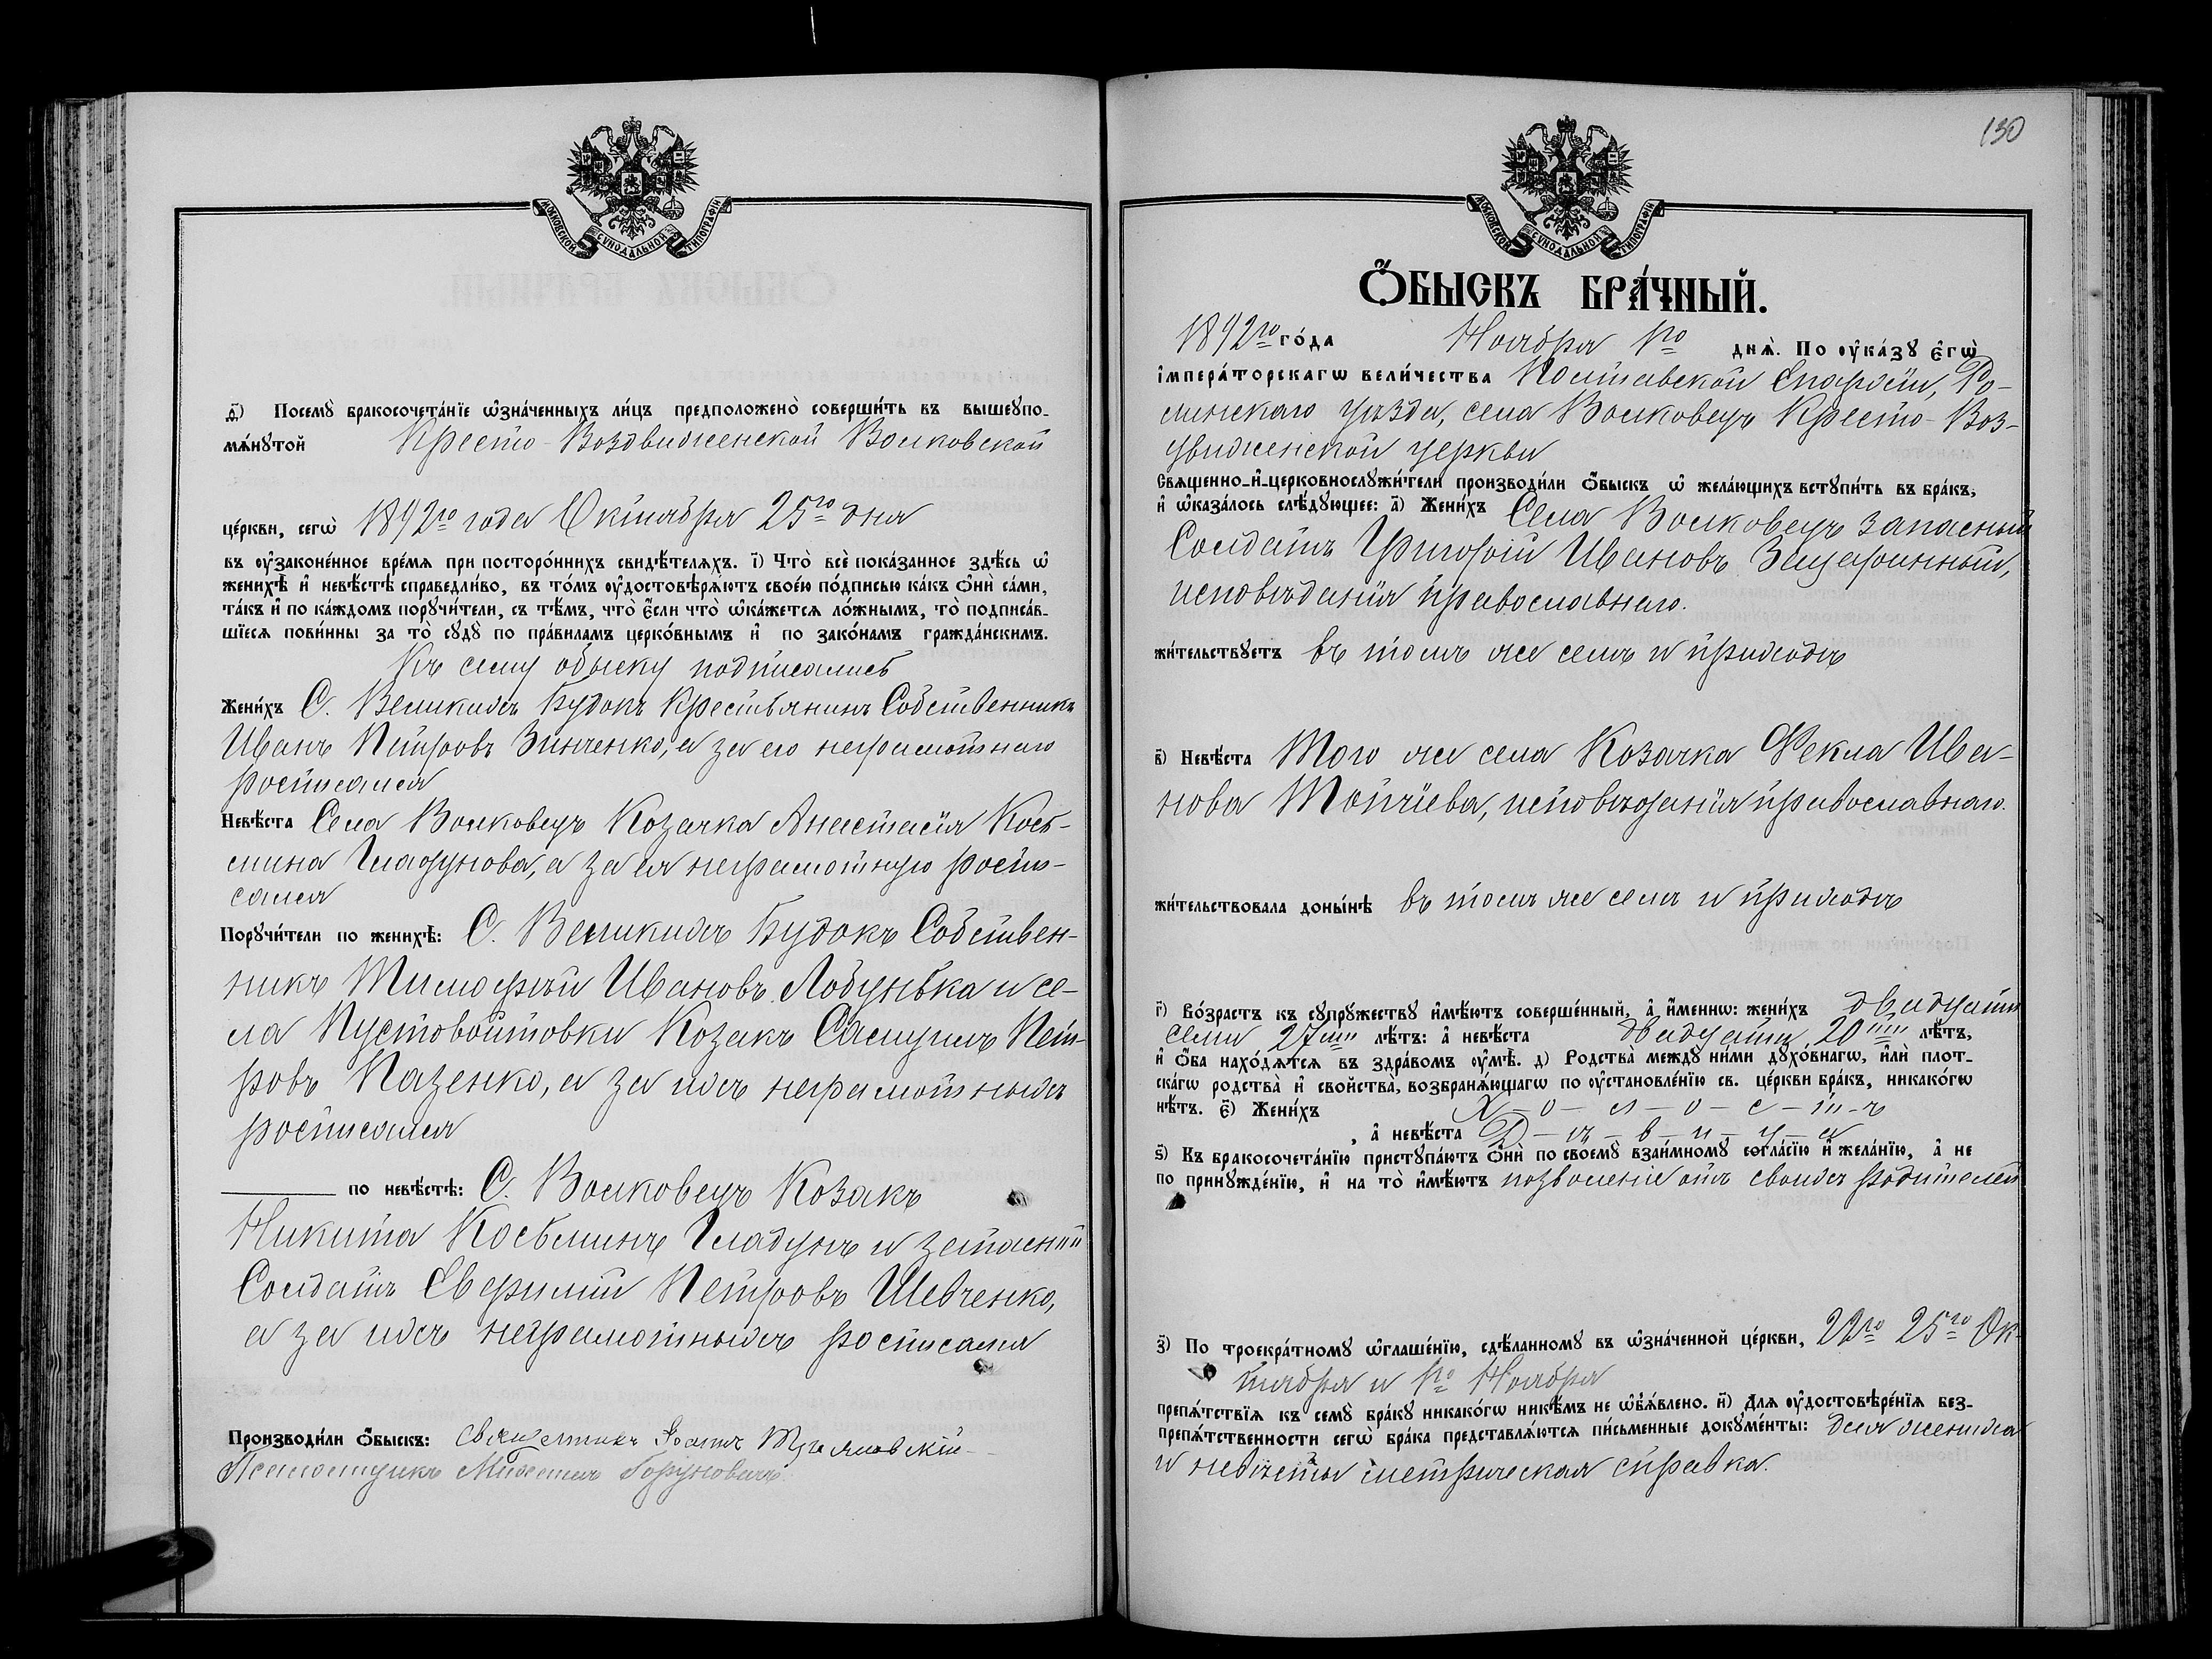 МОСКОВСКОЙ СѴНОДАЛЬНОЙ ТИПОГРАФІИ
д҃і) Посемꙋ̀ бракосочета́нїе ѡ҆зна́ченныхъ ли́цъ предположено̀ соверши́ть въ вышеꙋпо-
мѧ́нꙋтой Кресто-Воздвиженской Волковской
це́ркви, сегѡ̀ 1892го года Октября 25го дня
въ ᲂу҆зако́нённое вре́мѧ при посторо́ннихъ свидѣ́телѧхъ. і҃) Что̀ всѐ пока́занное здѣ́сь ѡ҆
женихѣ̀ и҆ невѣ́стѣ справедли́во, въ то́мъ ᲂу҆достовѣрѧ́ютъ свое́ю по́дписью ка́къ ѻ҆нѝ са́ми,
та́къ и҆ по ка́ждомъ порꙋчи́тели, съ тѣ́мъ, что̀ є҆́сли что̀ ѡ҆ка́жетсѧ ло́жнымъ, то̀ подписа́в-
шїесѧ пови́нны за то̀ сꙋдꙋ̀ по пра́виламъ церко́внымъ и҆ по зако́намъ гражда́нскимъ.
Къ сему обыску подписались
Жени́хъ С. Великихъ Будокъ Крестьянинъ Собственникъ
Иванъ Петровъ Зинченко, а за его неграмотнаго
росписался
Невѣ́ста Села Волковецъ Козачка Анастасія Кось-
мина Гладунова, а за ея неграмотную роспи-
сался
Порꙋчи́тели по женихѣ̀: С. Великихъ Будокъ Собствен-
никъ Тимофѣй Ивановъ Лобунька и се-
ла Пустовойтовки Козакъ Самуилъ Пет-
ровъ Пазенко, а за ихъ неграмотныхъ
росписался
по невѣ́стѣ: С. Волковецъ Козакъ
Никита Косьминъ Гладунъ и запасный
Солдатъ Евфимій Петровъ Шевченко,
а за ихъ неграмотныхъ росписался
Производи́ли ѻ҆́быскъ: Священникъ Іоаннъ
Псаломщикъ Михаилъ
130
МОСКОВСКОЙ СѴНОДАЛЬНОЙ ТИПОГРАФІИ
Ѻ҆́БЫСКЪ БРА́ЧНЫЙ.
1892го го́да Ноября 1го днѧ̀. По ᲂу҆ка́зꙋ є҆гѡ̀
і҆мпера́торскагѡ вели́чества Полтавской Епархіи, Ро-
менскаго уѣзда, села Волковецъ Кресто-Воз-
движенской церкви
Сващенно-и҆-церковнослꙋжи́тели производи́ли ѻ҆́быскъ ѡ҆ жела́ющихъ встꙋпи́ть въ бра́къ,
и҆ ѡ҆каза́лось слѣ́дꙋющее: а҃) Жени́хъ Села Волковецъ запасный
Солдатъ Григорій Ивановъ Защаринный,
исповѣданія православнаго.
жи́тельствꙋетъ въ томъ же селѣ и приходѣ
в҃) Невѣ́ста Того же села Козачка Фекла Ива-
нова Топчіева, исповѣданія православнаго.
жи́тельствовала доны́нѣ въ томъ же селѣ и приходѣ
г҃) Во́зрастъ къ сꙋпрꙋжествꙋ и҆мѣ́ютъ соверше́нный, а҆ и҆́менно: жени́хъ двадцати
семи 27ми лѣ́тъ: а҆ невѣ́ста двадцати 20ти лѣ́тъ,
и҆ ѻ҆́ба нахо́дѧтсѧ въ здра́вомъ ᲂу҆мѣ̀. д҃) Родства̀ междꙋ ни́ми дꙋхо́внагѡ, и҆лѝ плот-
ска́гѡ родства̀ и҆ сво́йства̀, возбранѧ́ющагѡ по ᲂу҆становле́нїю св. це́ркви бра́къ, никако́гѡ
нѣ́тъ. є҃) Жени́хъ Х-о-л-о-с-т-ъ
, а҆ невѣ́ста Д-ѣ-в-и-ц-а
ѕ҃) Къ бракосочета́нїю пристꙋпа́ютъ ѻ҆нѝ по своемꙋ̀ взаи́мномꙋ согла́сїю и҆ жела́нїю, а҆ не
по принꙋжде́нїю, и҆ на то̀ и҆мѣ́ютъ позволеніе отъ своихъ родителей
з҃) По троекра́тномꙋ ѡ҆глаше́нїю, сдѣ́ланномꙋ въ ѡ҆зна́ченной це́ркви, 22го 25го Ок-
тября и 1го Ноября
препѧ́тствїѧ къ семꙋ̀ бра́кꙋ никако́гѡ никѣ́мъ не ѡ҆б̾ѧ́влено. и҃) Длѧ ᲂу҆достовѣре́нїѧ без-
препѧ́тственности сегѡ̀ бра́ка представлѧ́ютсѧ пи́сьменные докꙋме́нты: для жениха
и невѣсты метрическая справка.